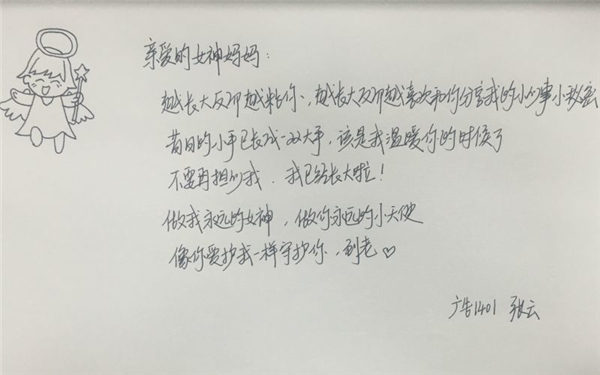 亲爱的女神妈妈：
越长大反而越粘你、越长大反而越喜欢和你分享我的小心事小秘密
昔日的小手已长成一双大手，该是我温暖你的时候了
不要再担心我、我已经长大啦！
做我永远的女神，做你永远的小天使
像你爱护我一样守护你、到老♡
广告1401 张云